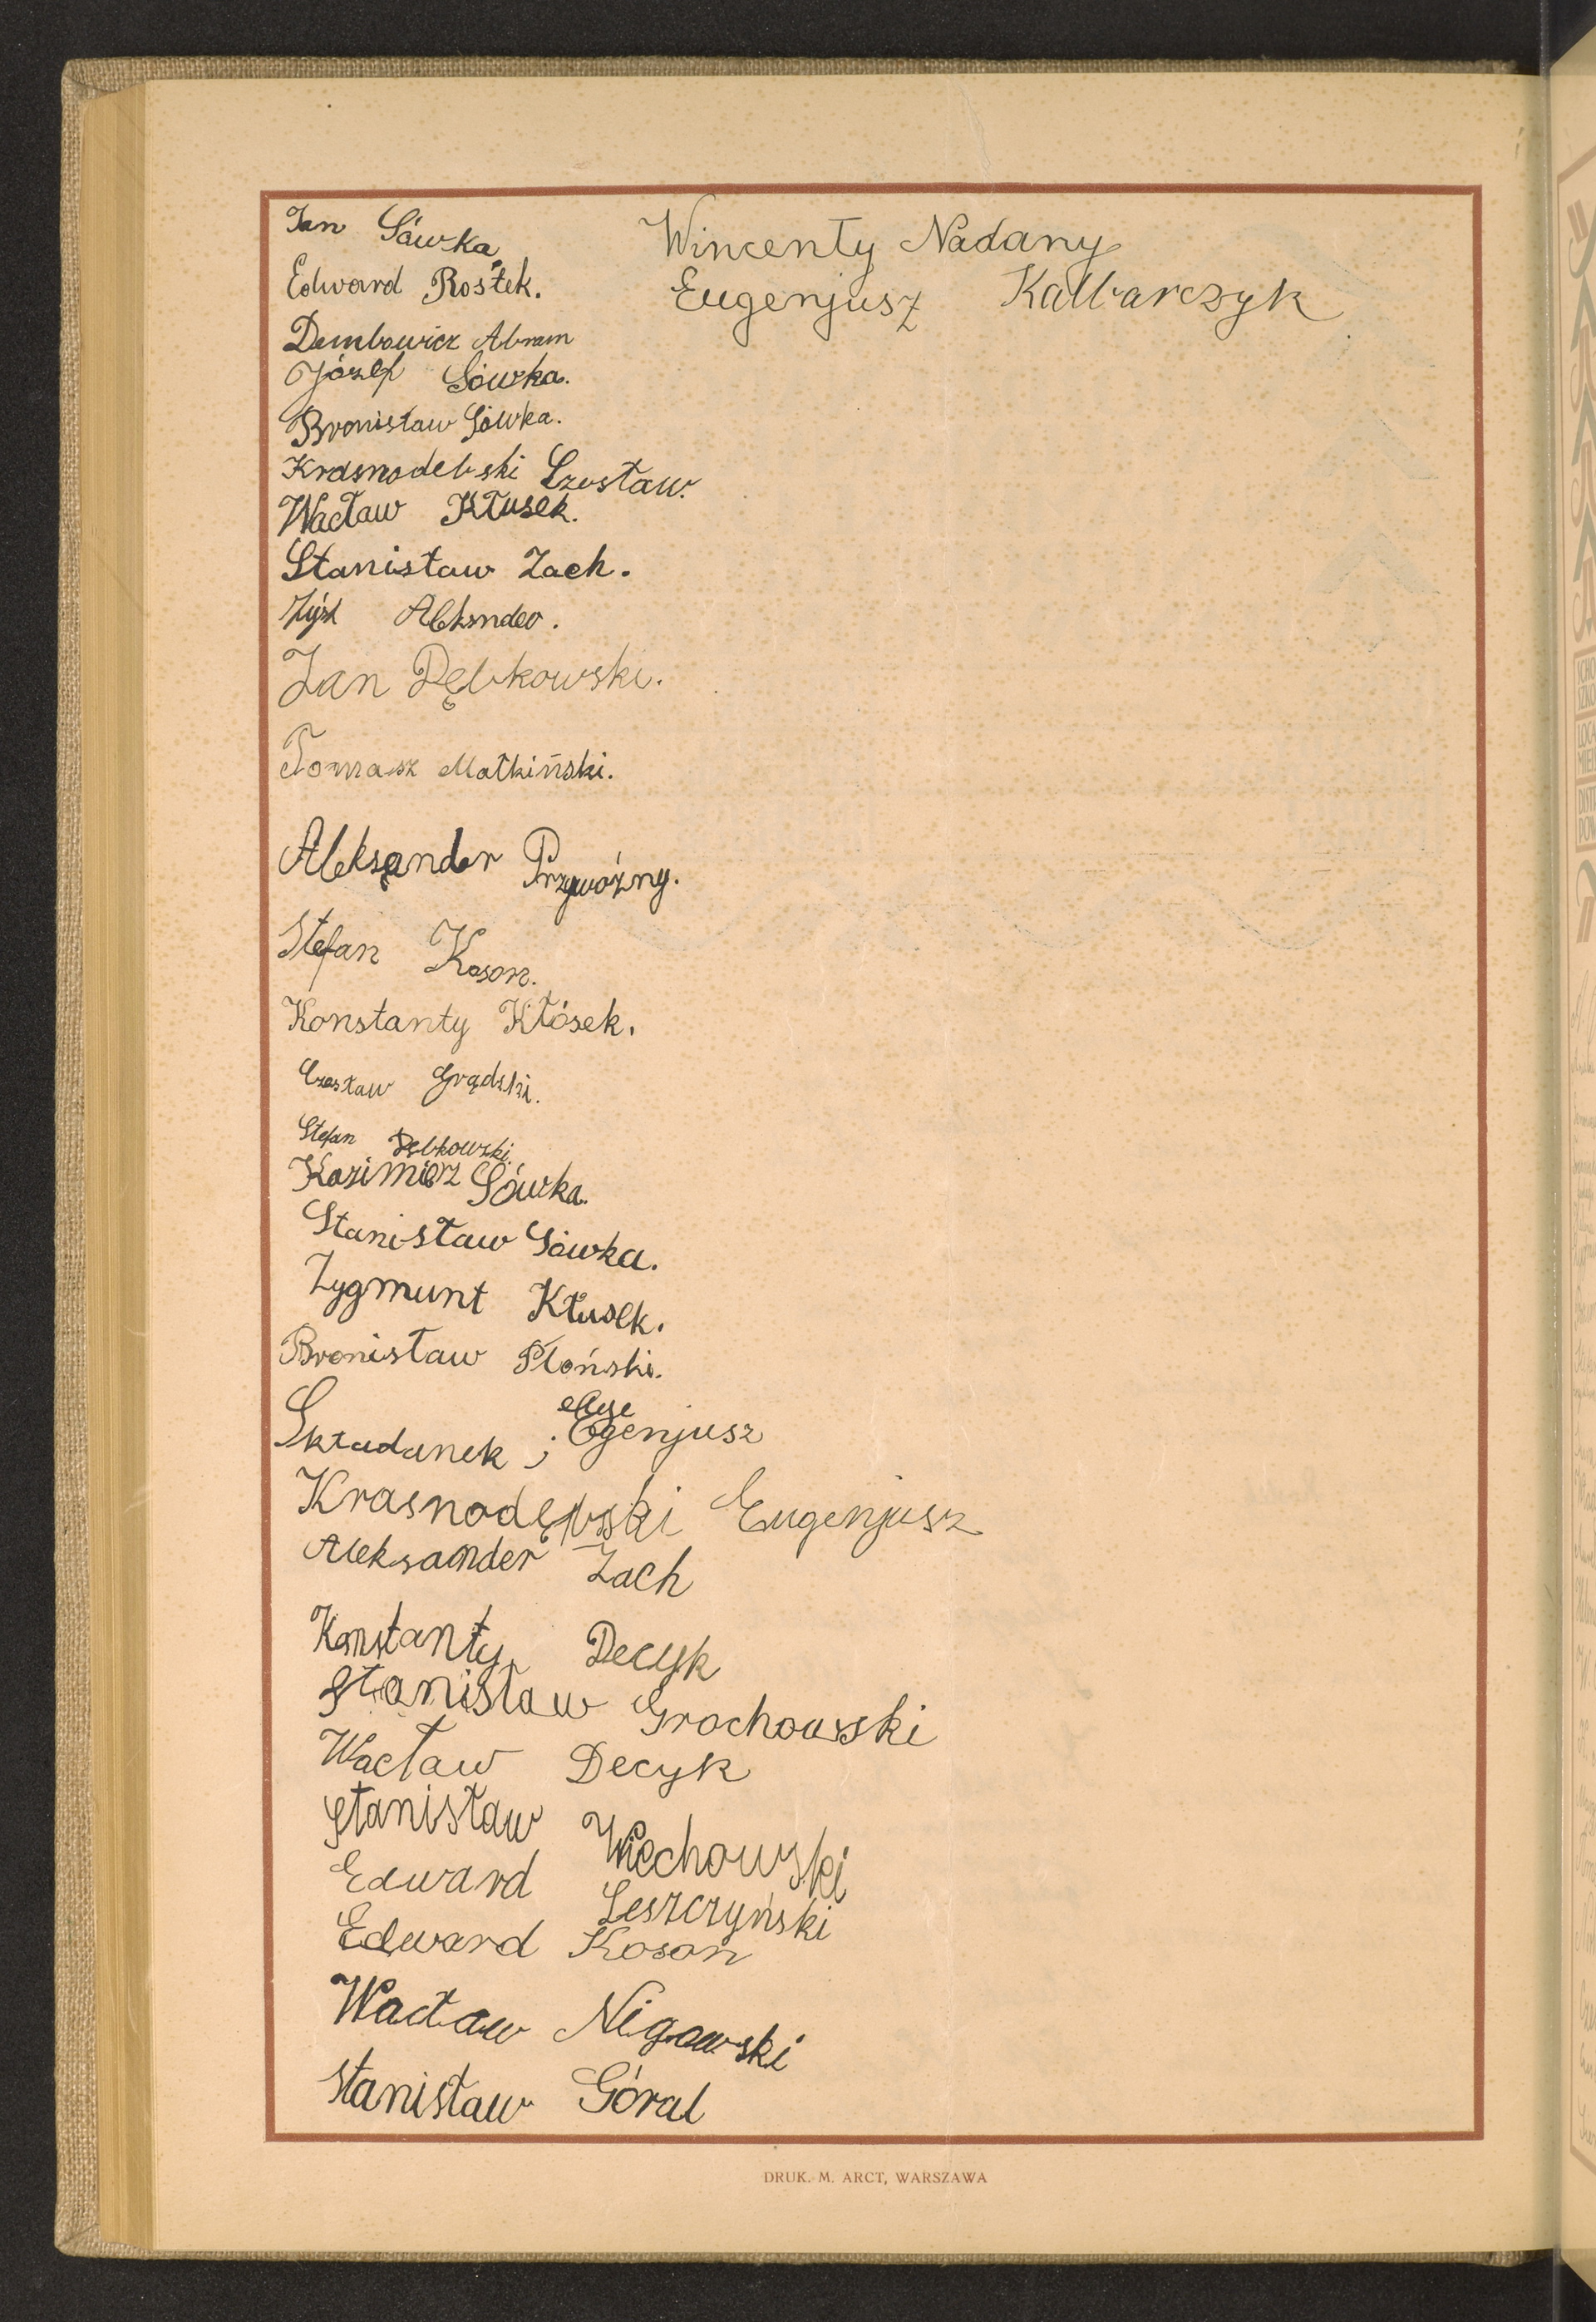 Jan Sówka
Edward Rostek.
Dembowicz Abram
Józef Sówka.
Bronisław Sówka.
Krasnodebski Czesław.
Wacław Kłusek.
Stanisław Zach.
Zyśk
Jan Dębkowski.
Tomasz Małkiński.
Aleksander Przywóźny.
Stefan Koson.
Konstanty Kłósek.
Czesław Grądzki.
Stefan Dębkowski.
Kazimierz Sówka.
Stanisław Sówka.
Zygmunt Kłusek.
Bronisław Płoński.
Składanek ; Egenjusz
Krasnodębski Eugenjusz
Aleksander Zach
Konstanty Decyk
Stanisław Grochowski
Wacław Decyk
Stanisław Wiechowski
Edward Leszczyński
Edward Koson
Wacław Nigowski
Stanisław Góral
Wincenty Nadany
Eugenjusz Kalbarczyk
DRUK. M. ARCT, WARSZAWA